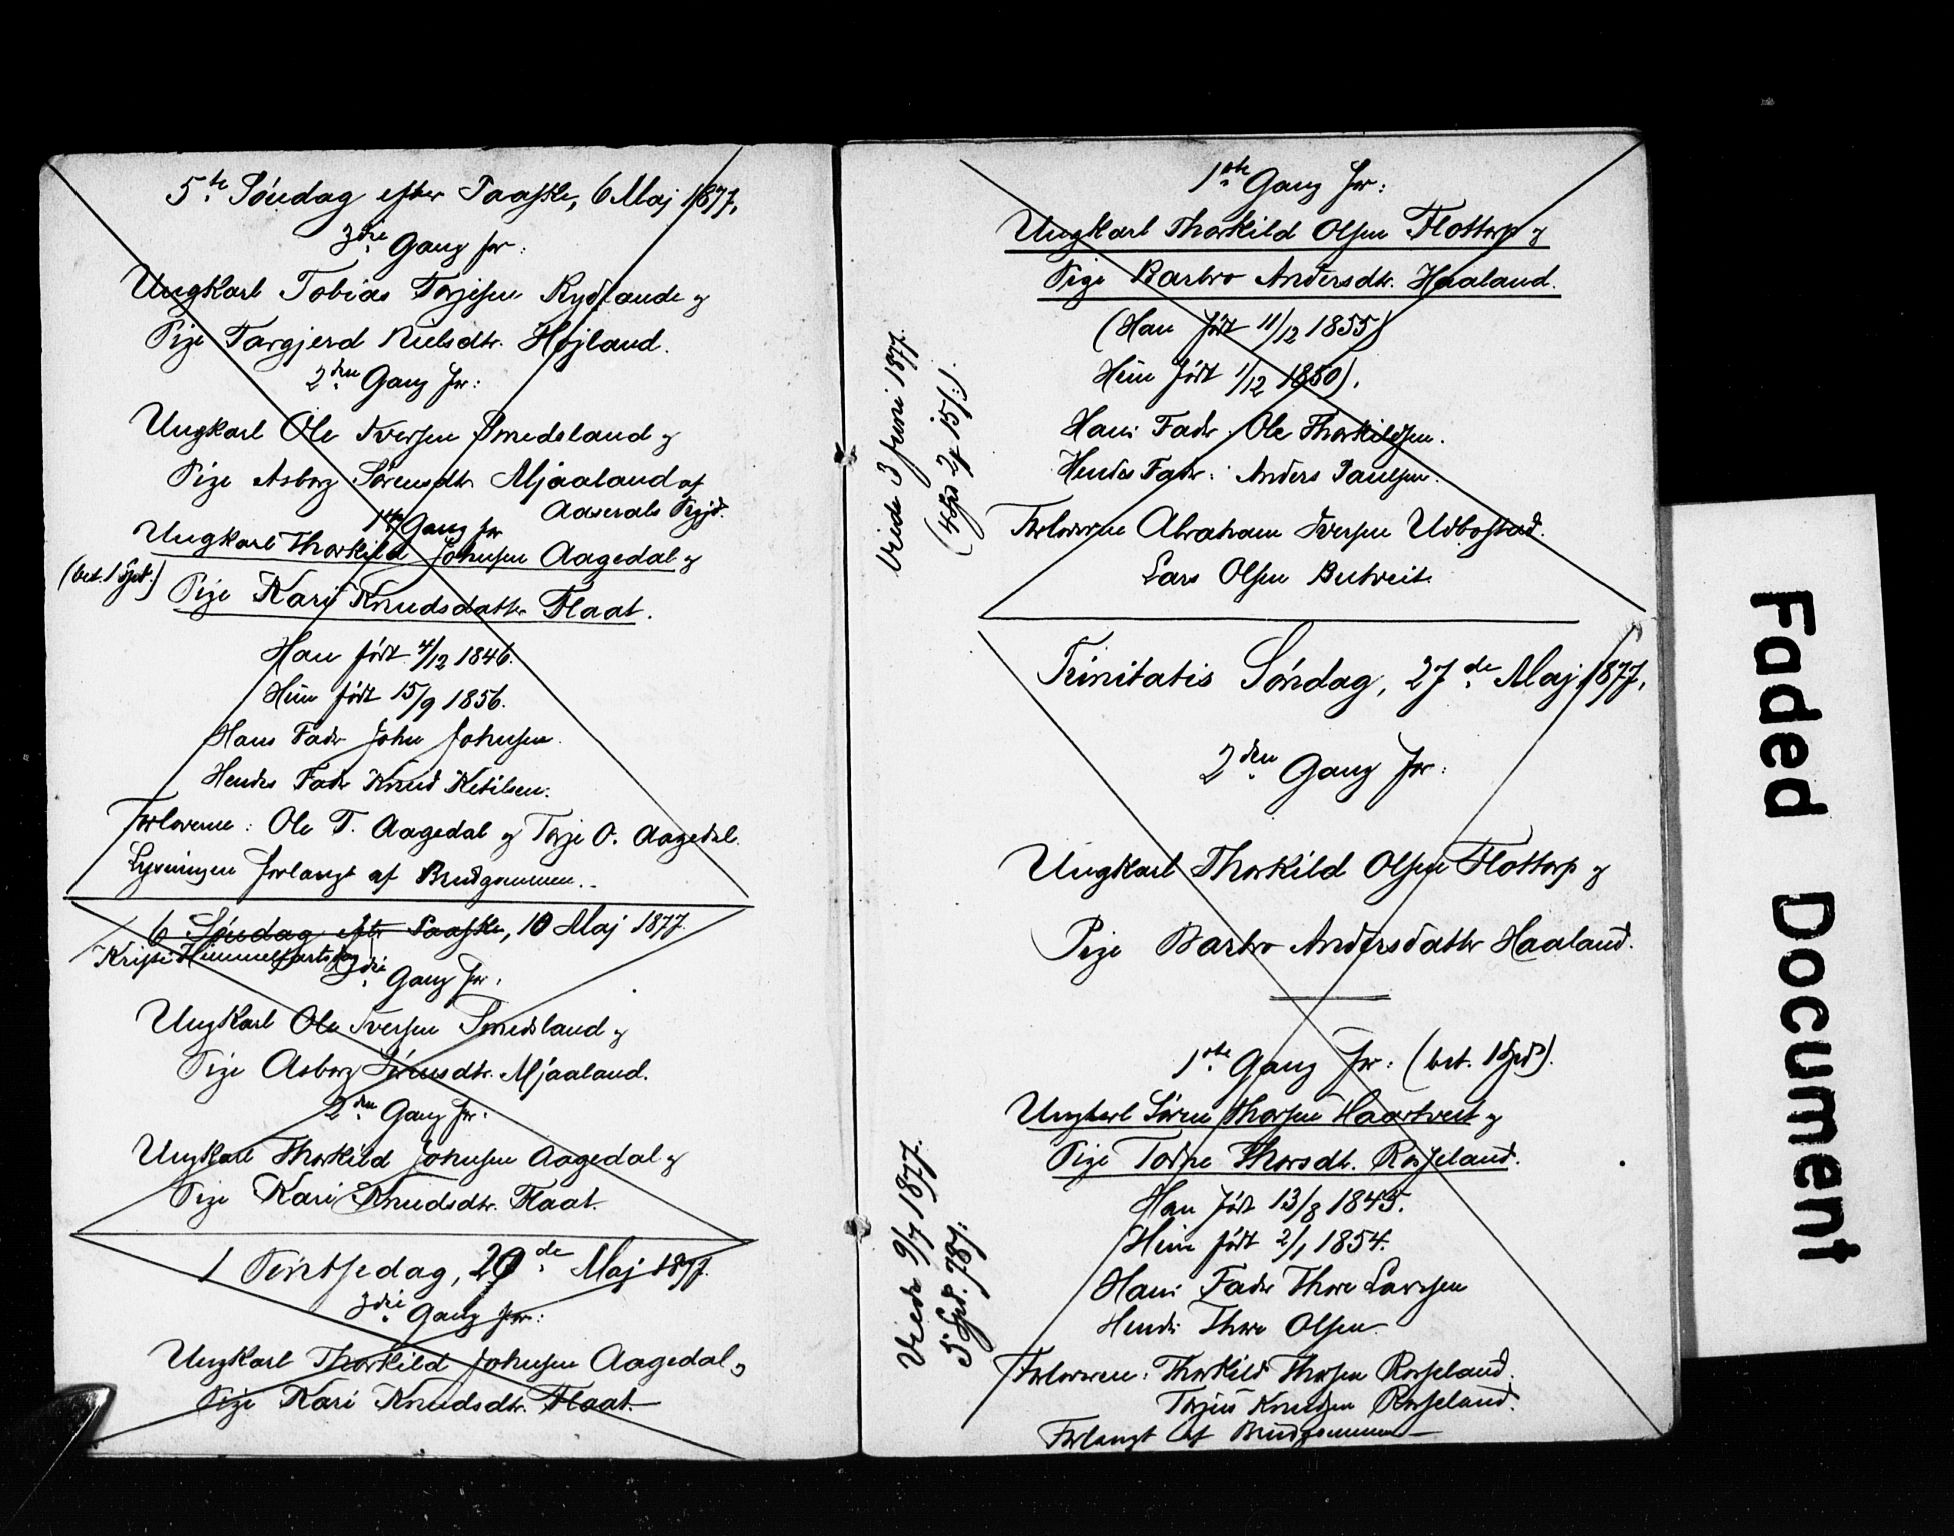 5te Søndag efter Paaske, 6 Maj 1877,
3die Gang for:
Ungkarl Tobias Torjesen Rydlande og
Pige Targjerd Nielsdtr. Højland.
2den Gang for:
Ungkarl Ole Iversen Smedsland og
Pige Asborg Sørensdtr Mjaaland af
Aaserals Prgjd.
1ste Gang for
Ungkarl Thorkild Johnsen Aagedal og
(bet. 1 Spd.)
Pige Kari Knudsdatter Flaat.
Han født 4/12 1846.
Hun født 15/9 1856.
Hans Fader John Johnsen.
Hendes Fader Knud Ketilsen.
Forloverne: Ole T. Aagedal og Torje O. Aagedal.
Lysningen forlangt af Brudgommen.
6 Søndag efter Paaske, 10 Maj 1877.
Kristi Himmelfartsdag
3die Gang for:
Ungkarl Ole Iversen Smedsland og
Pige Asborg Sørensdtr. Mjaaland.
2den Gang for:
Ungkarl Thorkild Johnsen Aagedal og
Pige Kari Knudsdtr. Flaat.
1 Pintsedag, 20de Maj 1877.
3die Gang for:
Ungkarl Thorkild Johnsen Aagedal og
Pige Kari Knudsdtr. Flaat.
1ste Gang for:
Ungkarl Thorkild Olsen Flottorp og
Pige Barbro Andersdtr. Haaland.
(Han født 11/12 1855)
Hun født 1/12 1850).
Hans Fader Ole Thorkildsen.
Hendes Fader: Anders Paulsen.
Forloverne Abraham Iversen Udbostad.
Lars Olsen Butveit
Viede 3 Juni 1877.
Trinitatis Søndag, 27de Maj 1877,
2den Gang for:
Ungkarl Thorkild Olsen Flottorp og
Pige Barbro Andersdatter Haaland.
1ste Gang for: (bet. 1 Spd).
Ungkarl Søren Thorsen Haartveit og
Pige Thorsdt. Rosseland.
Han født 13/8 1845.
Hun født 2/1 1854.
Hans Fader Thore Larssen
Hendes Thore Olsen
Forloverne: Thorkild Thorsen Rosseland.
Torjus Knudsen Rosseland.
Forlangt af Brudgommen
Viede 9/7 1877.
Faded Document